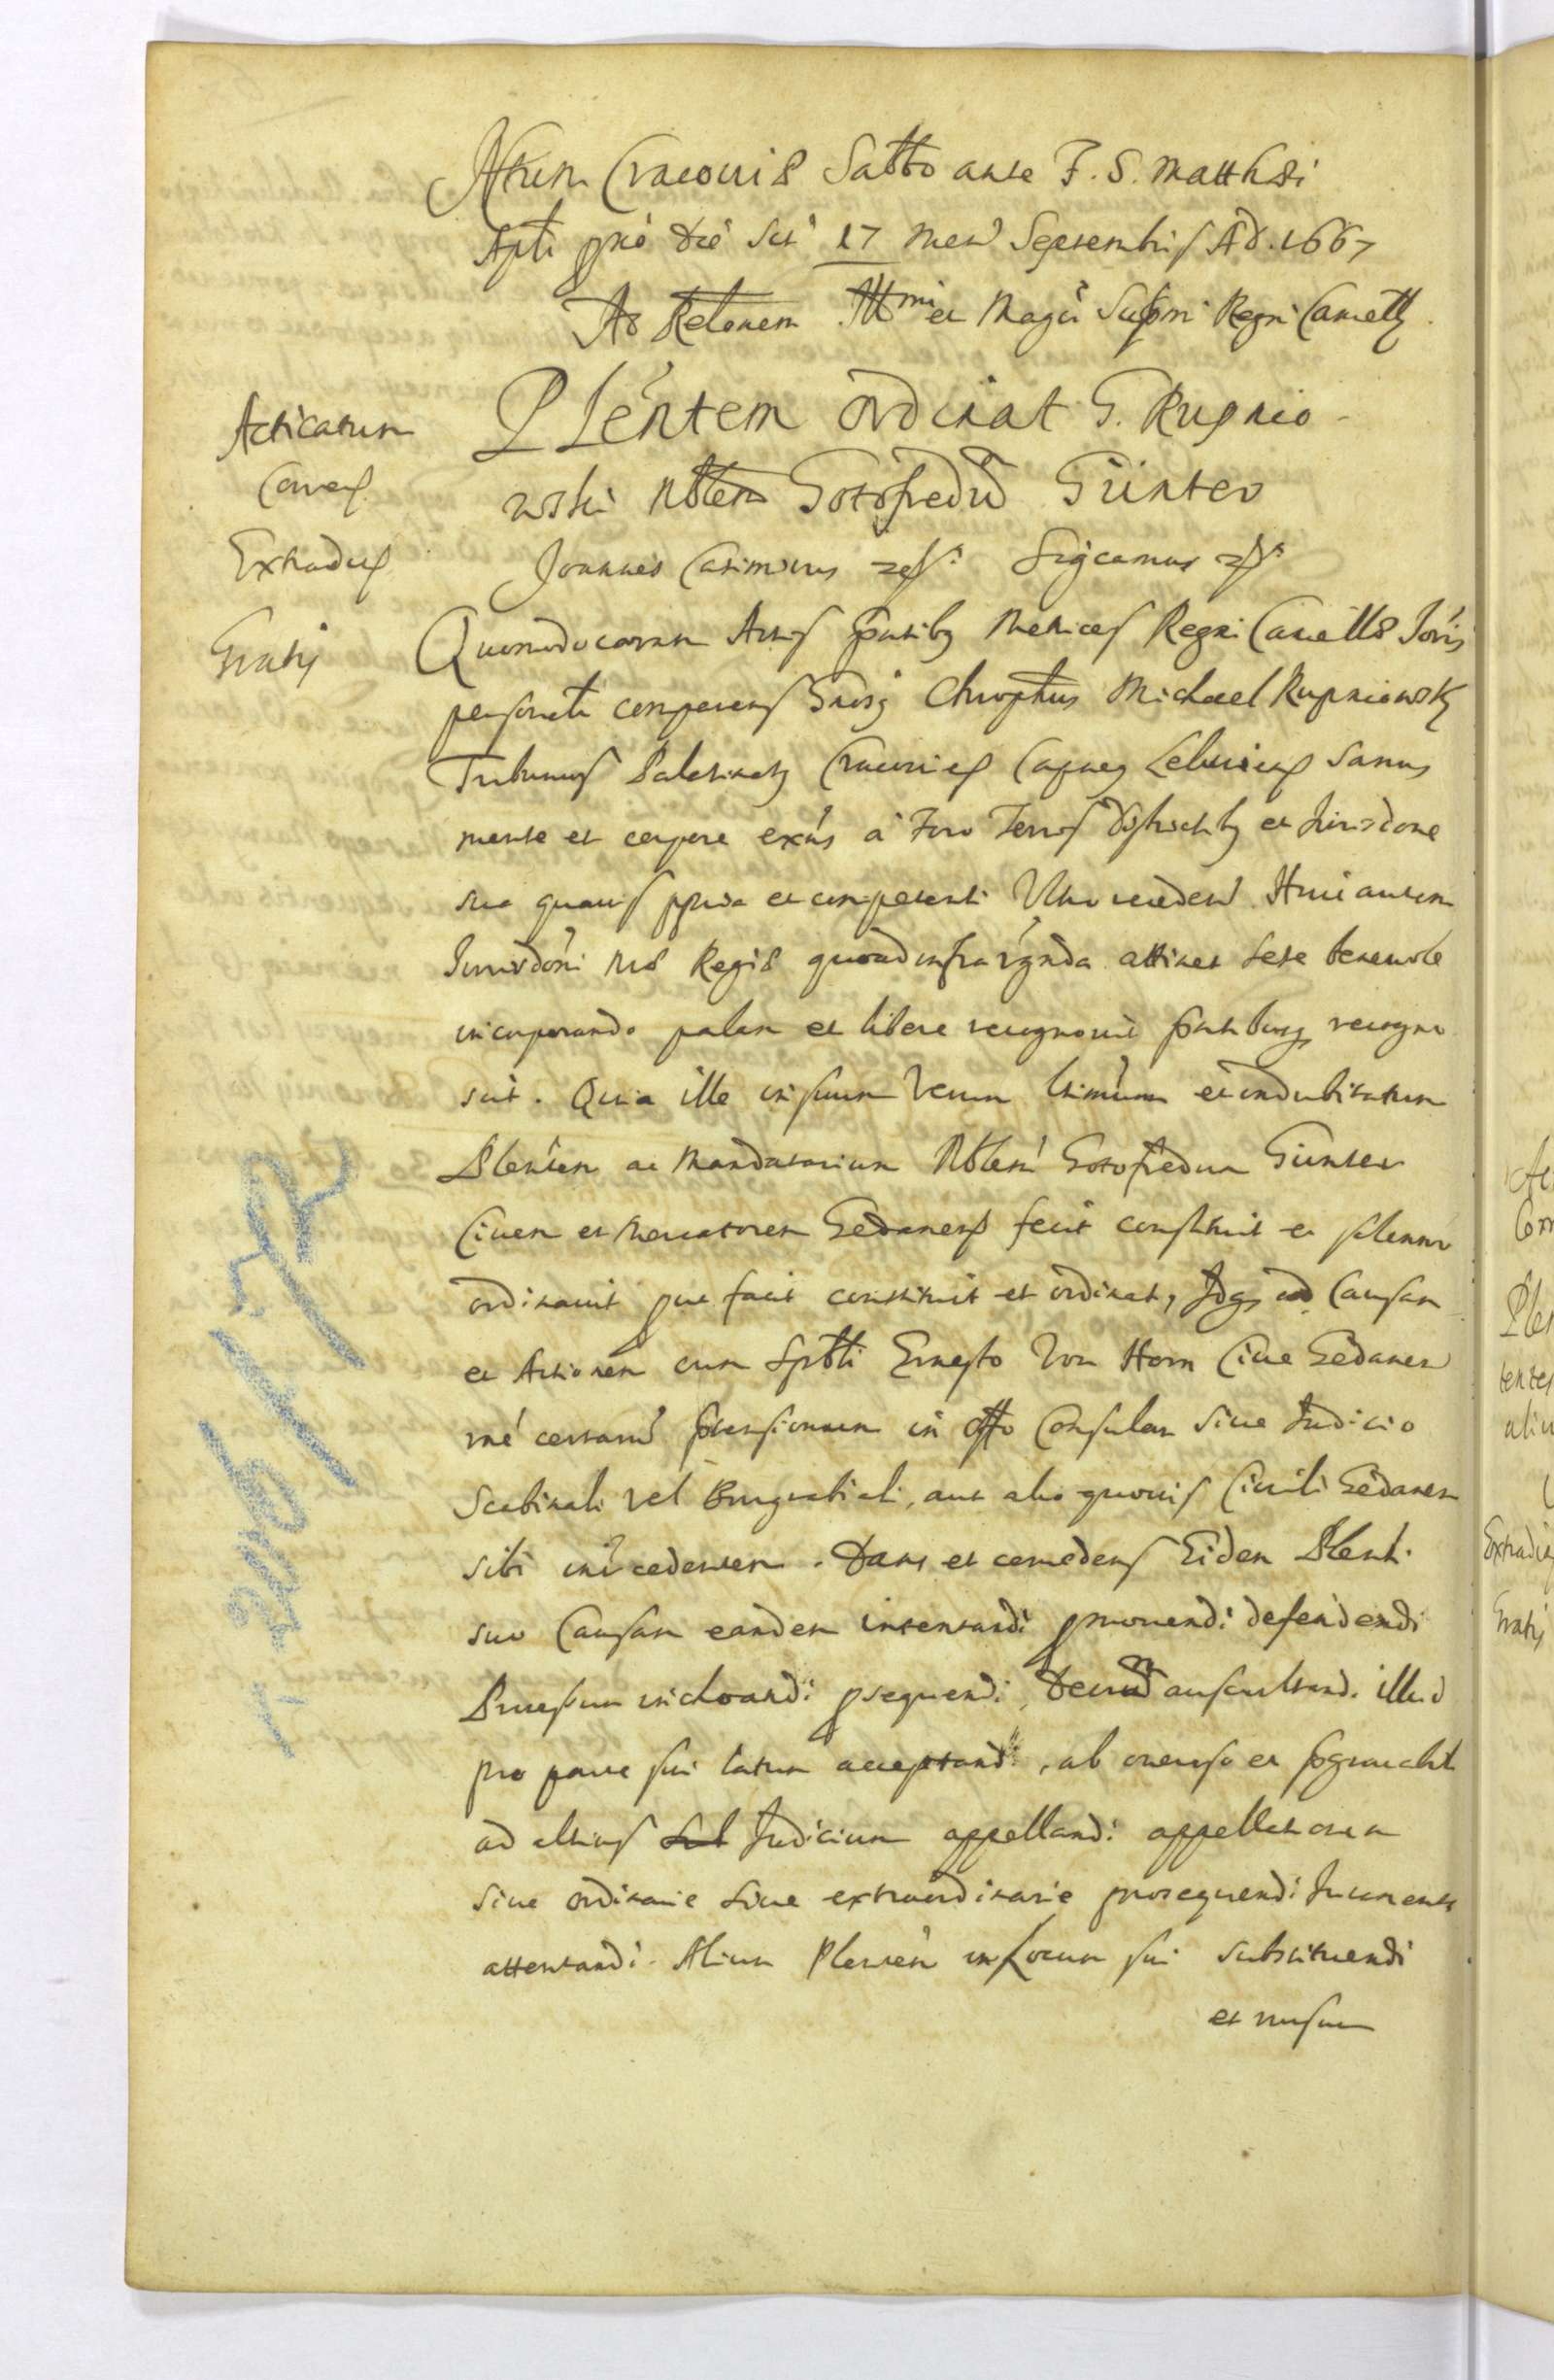 Actum Cracouiæ Sabbo ante F. S. Matthæi
Apti pri̇o die sct 17 Mens Septembris AD. 1667
Ad Relonem Illmi et Magci Supmi Regni Cancell
Acticatum
Correct
Extradit
Gratis
Plentem ordinat G. Rupnio-
wski Nblem Gotofredu Günter
Joannes Casimirus Significamus
Quomodo coram Actis pntibz Metrices Regni Cancellæ
personalr comparens Gnosus Chrophrus Michael Rupniowsky
Tribunus Palatinatus Cracouien Capneus Leloviens sanus
mente et corpore exns a Foro Terris districtubz et Jurisdone
sua quauis ppria et competenti Vltro recedens Huic autem
Jurisdoni Mis Regiæ quoad infra scripta attinet sese beneuole
incorporando palam et libere recognouit pntibusqz recogno
scit. Quia ille in suum Verum ltimum et indubitatum
Plentem ac Mandatarium Nblem Gotofredum Günter
Ciuem et Mercatorem Gedanens fecit constituit et solenniter
ordinauit prout facit constituit et ordinat, Idqz ad Causam
et Actionem cum Spbli Ernesto Von Horn Ciue Gedanen
rne certarum prætensionum in Offo Consulari Siue Judicio
Scabinali vel Burgrabiali, aut alio quouis Ciuili Gedanen
sibi intercedentem. Dans et concedens Eidem Plenti
suo Causam eandem intentandi promouendi defendendi
Processum inchoandi prosequendi, Decretum auscultandi illud
pro parte sui latum acceptandi, ab oneroso et prægrauabili
ad altius Judicium appellandi appellationem
siue ordinarie siue extraordinarie prosequendi Juramenta
attentandi. Alium Plentem in Locum sui substituendi
et rursum